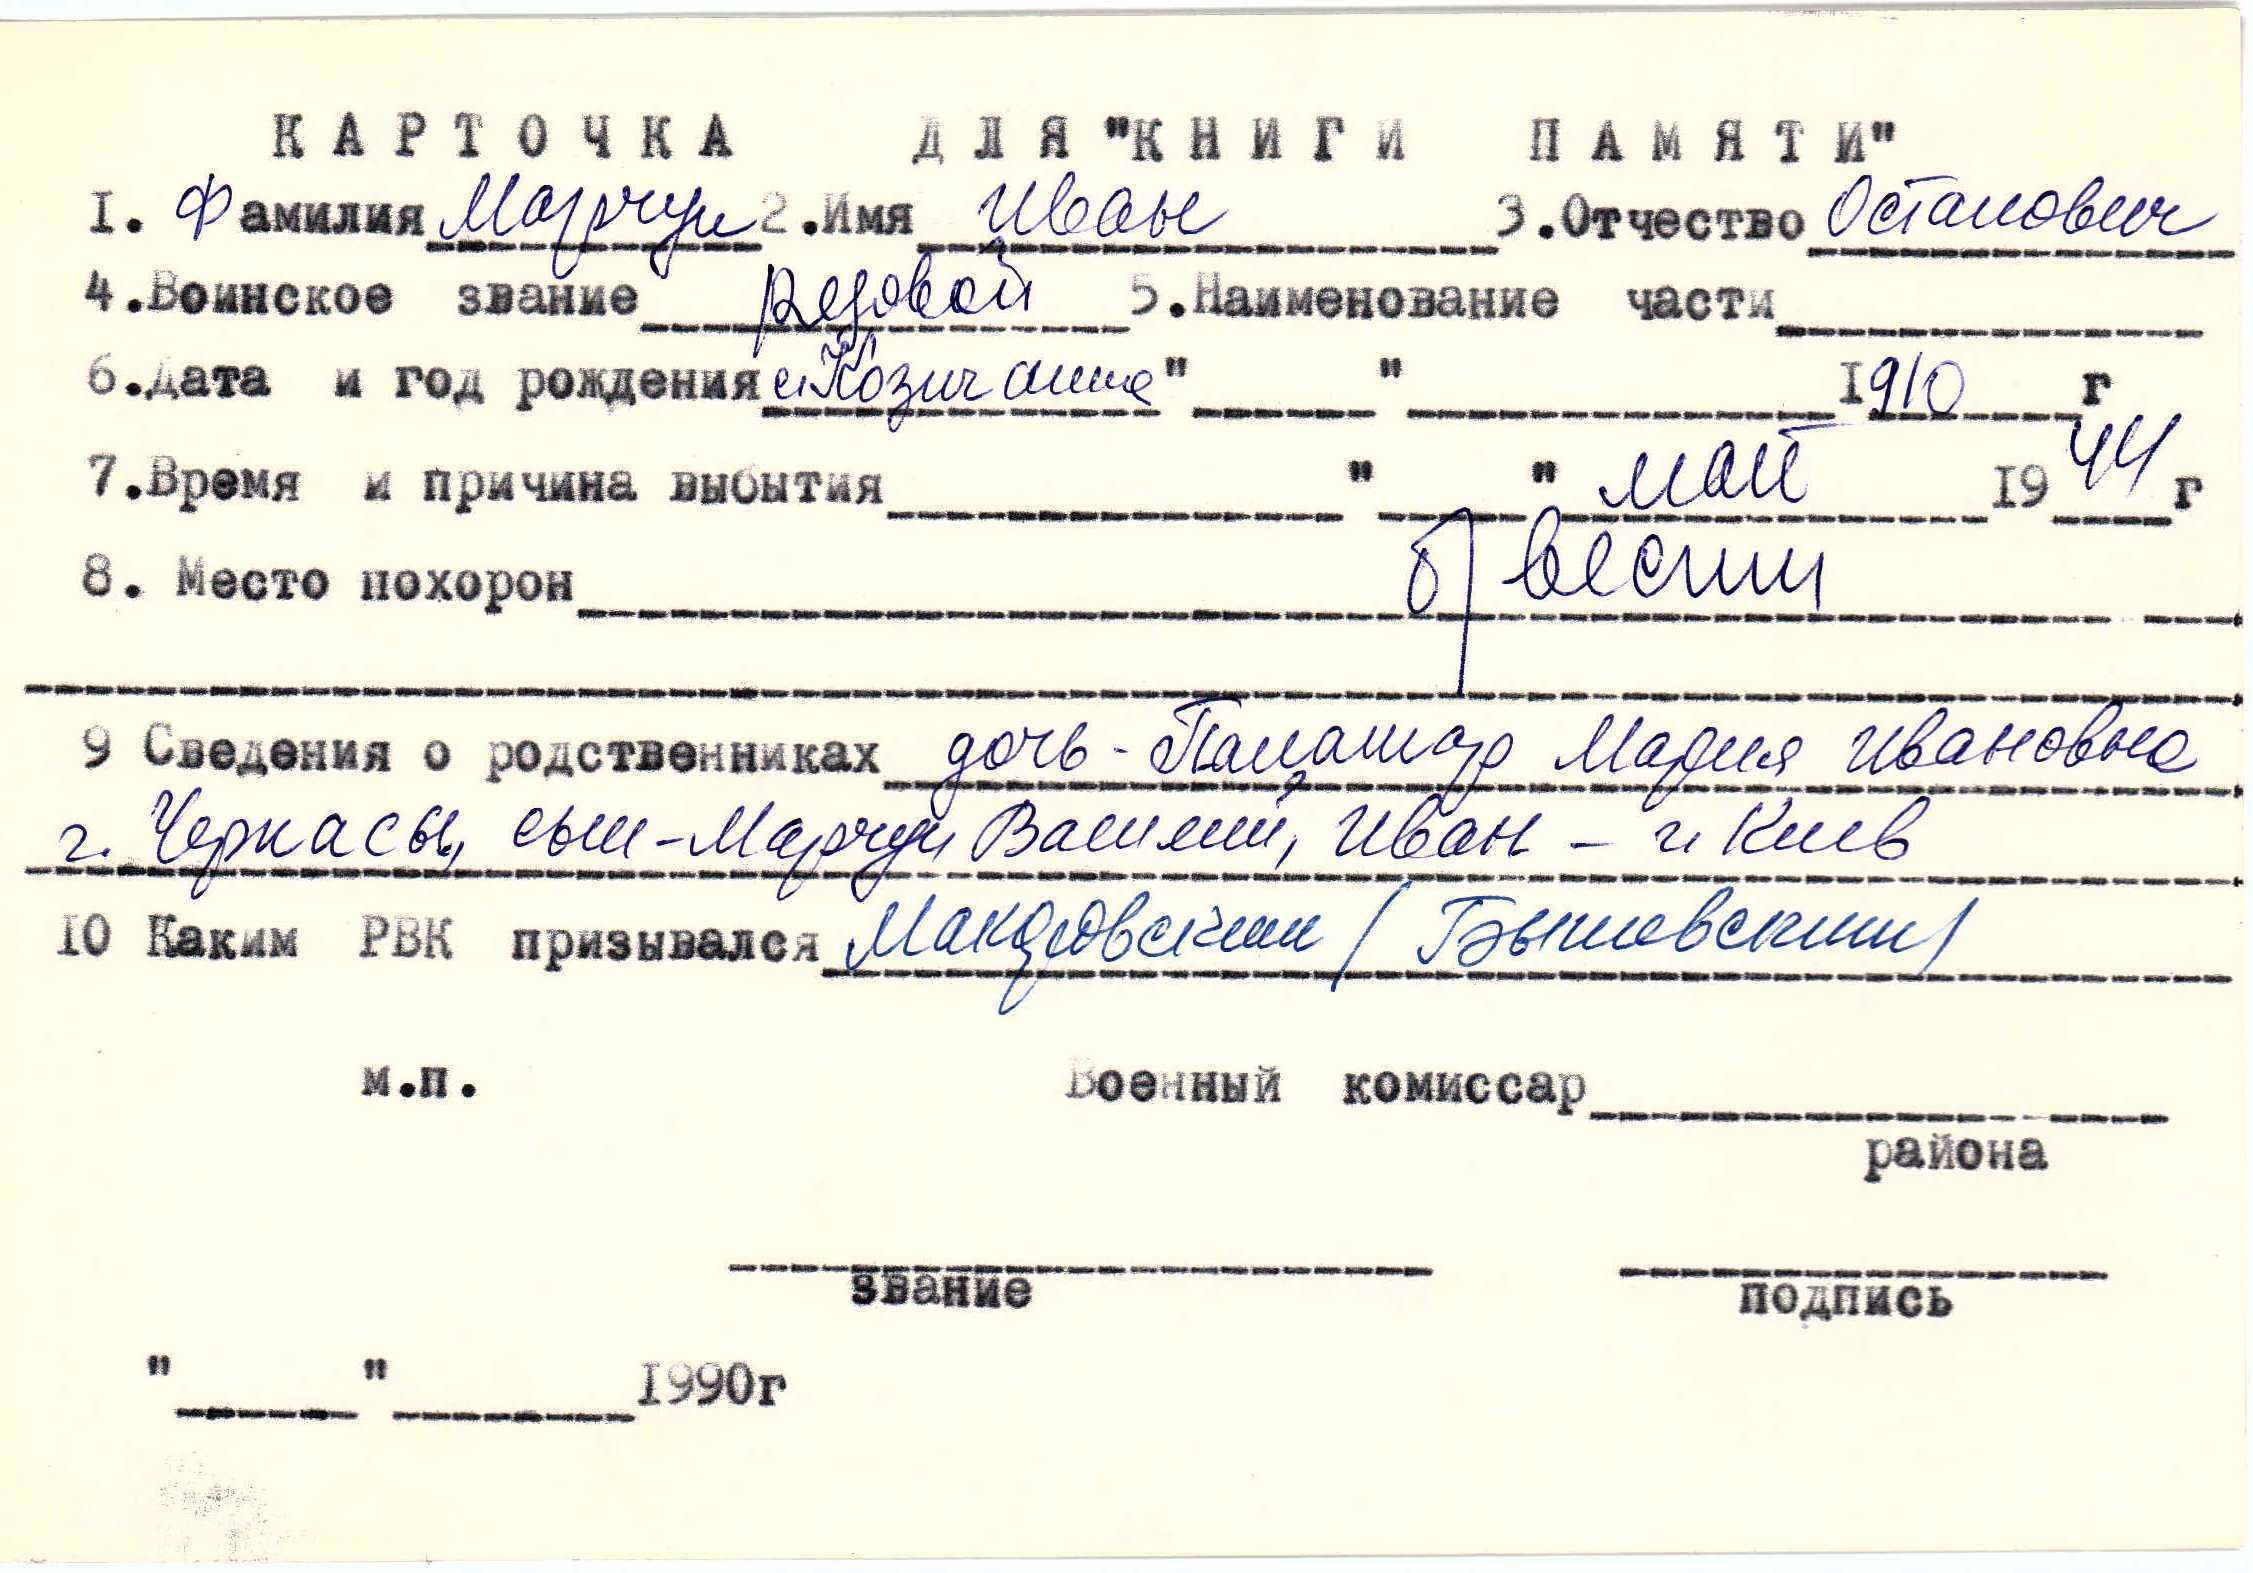 КАРТОЧКА ДЛЯ "КНИГИ ПАМЯТИ"
1. Фамилия Марчун 2.Имя Иван 3.Отчество Остапович
4.Воинское звание рядовой 5.Наименование части
6.Дата и год рождения с. Козичанка " " 1910 г
7.Время и причина выбытия " " май 1944 г
8. Место похорон б/вести
9 Сведения о родственниках дочь - Мария Ивановна
г. Черкасы, сын - Марчун Василий, Иван - г. Киев
10 Каким РВК призывался Макаровским (Бышевским)
м.п. Военный комиссар
района
звание подпись
" " 1990г